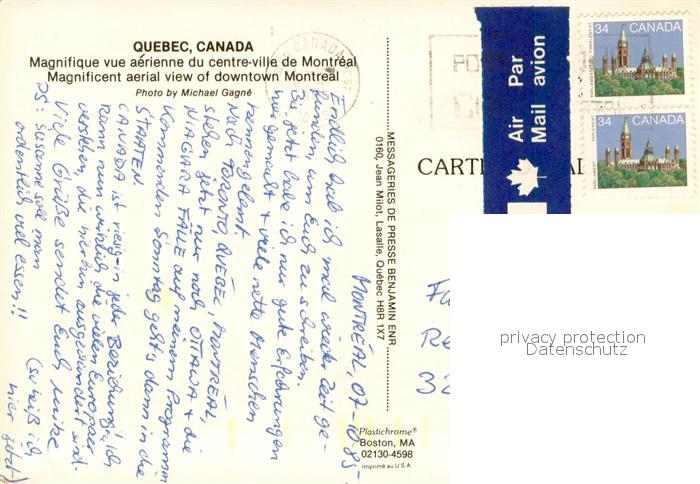 QUEBEC, CANADA
Magnifique vue aérienne du centre-ville de Montréal
Magnificent aerial view of downtown Montreal
Photo by Michael Gagné
MONTRÉAL 07-10-85-
Endlich hab ich mal wieder Zeit ge-
funden, um Euch zu schreiben.
Bis jetzt habe ich nur gute Erfahrungen
hier gemacht + viele nette Menschen
kennengelernt.
Nach TORONTO, QUÉBEC, MONTRÉAL,
stehen jetzt nur noch OTTAWA + die
NIAGARA FÄLLE auf meinem Programm
Kommenden Sonntag geht's dann in die
STAATEN.
CANADA ist riesig - in jeder Beziehung! Ich
kann nun wirklich die vielen Europäer
verstehen, die hierhin ausgewandert sind.
Viele Grüße sendet Euch, unike
(so heiß ich
hier jetzt)
PS: Susanne soll man
ordentlich viel essen!!
MESSAGERIES DE PRESSE BENJAMIN ENR
0160, Jean Milot, Lasalle, Québec H8R 1X7
Air Par
Mail avion
34 CANADA
PARLIAMENT PARLEMENT
34 CANADA
PARLIAMENT PARLEMENT
CANADA
CARTE
Re
32
privacy protection
Datenschutz
Plastichrome®
Boston, MA
02130-4598
Imprimé au U.S.A